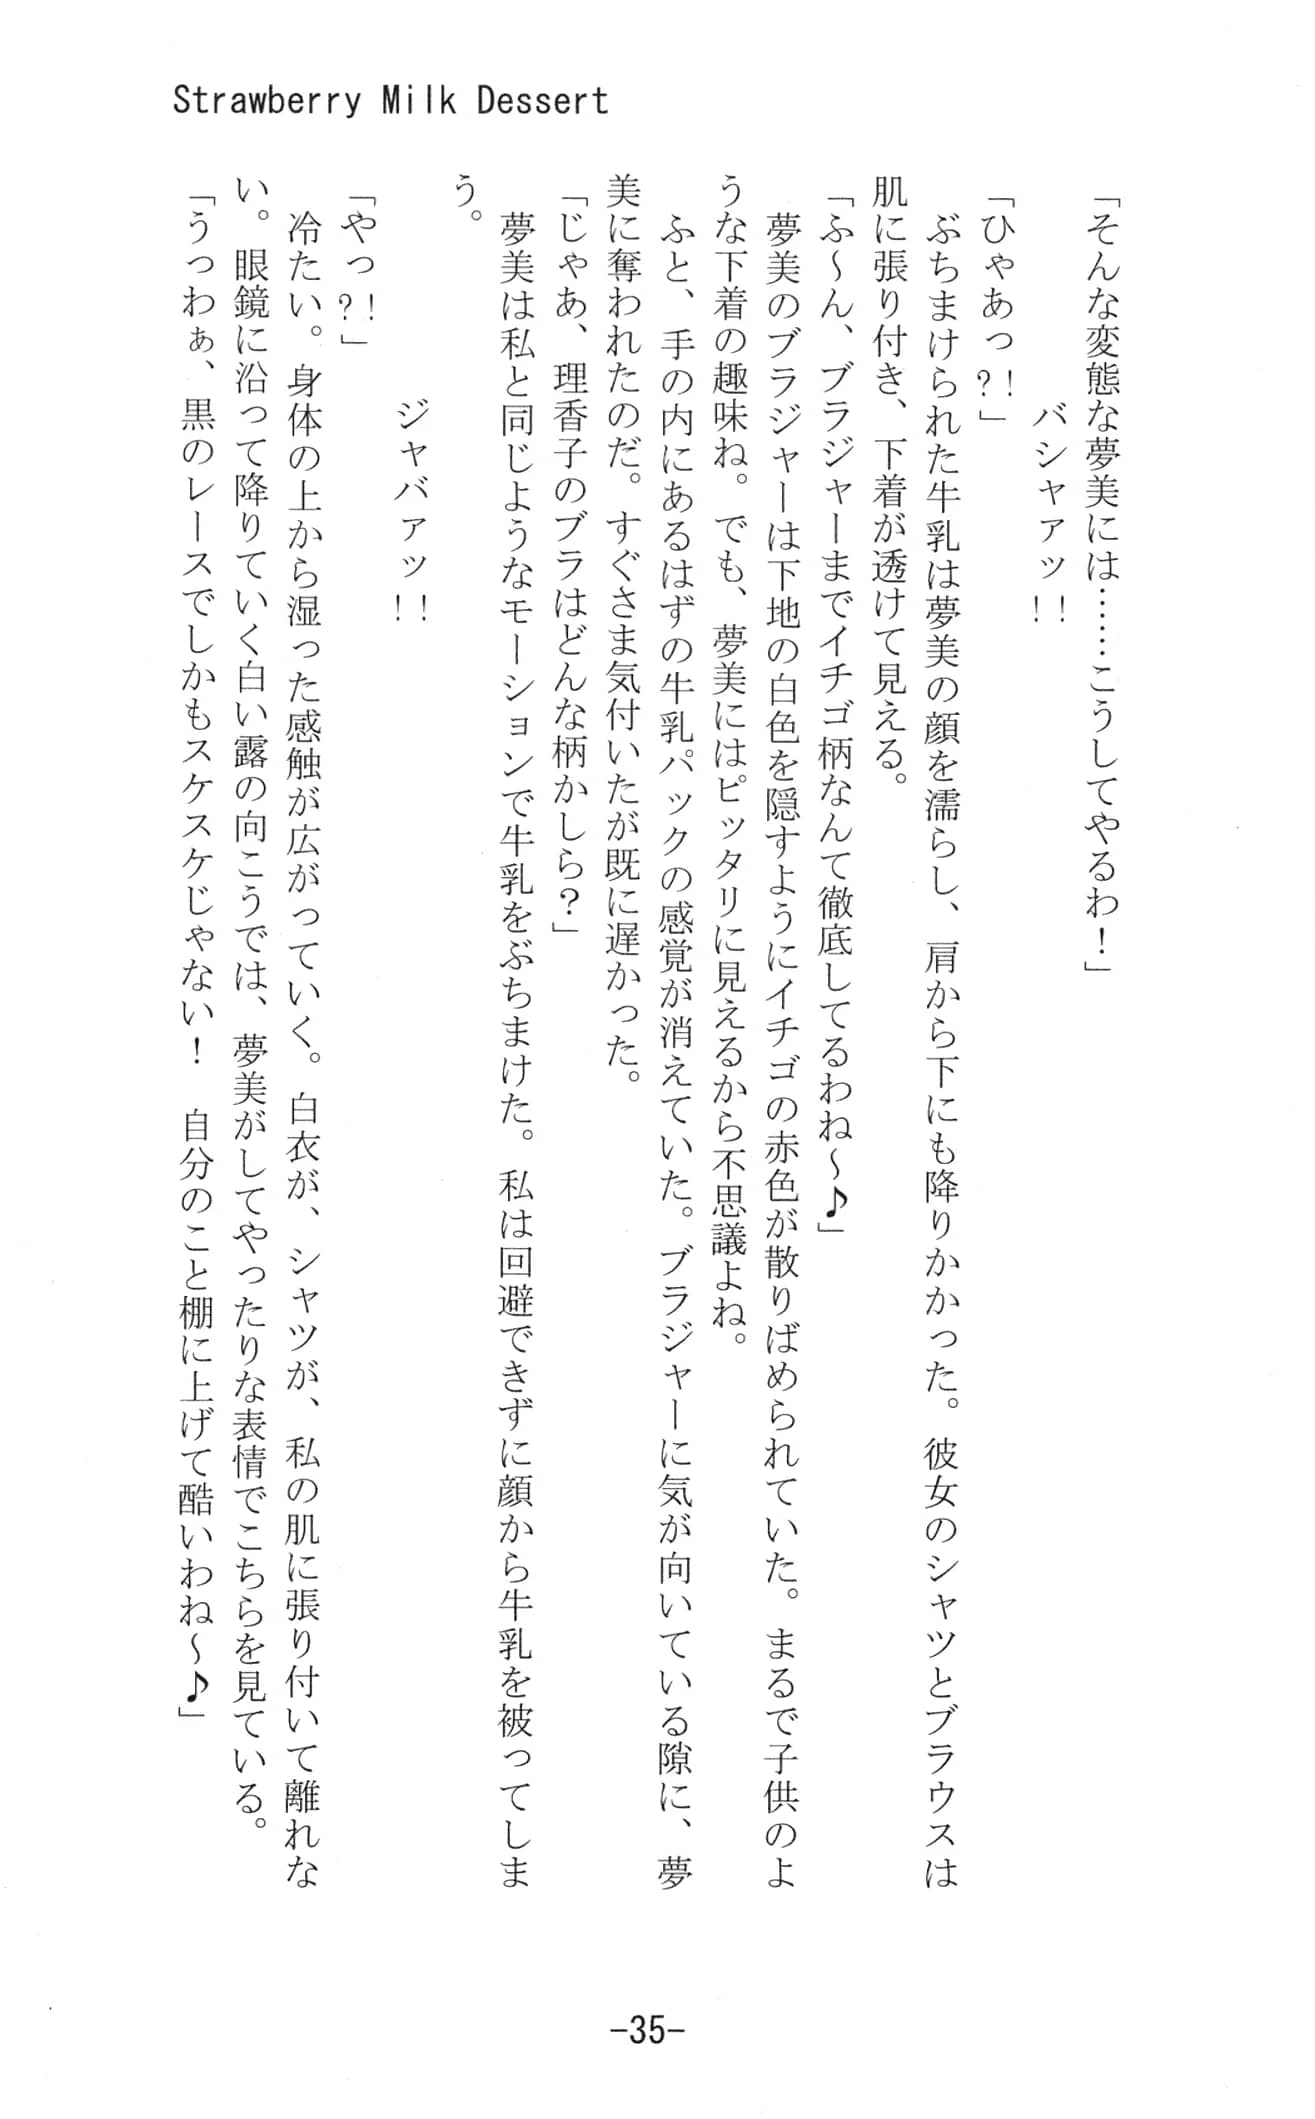 Strawberry Milk Dessert
「そんな変態な夢美には……こうしてやるわ！」
バシャァッ！！
「ひゃあっ?!」
ぶちまけられた牛乳は夢美の顔を濡らし、肩から下にも降りかかった。彼女のシャツとブラウスは
肌に張り付き、下着が透けて見える。
「ふ～ん、ブラジャーまでイチゴ柄なんて徹底してるわね～♪」
夢美のブラジャーは下地の白色を隠すようにイチゴの赤色が散りばめられていた。まるで子供のよ
うな下着の趣味ね。でも、夢美にはピッタリに見えるから不思議よね。
ふと、手の内にあるはずの牛乳パックの感覚が消えていた。ブラジャーに気が向いている隙に、夢
美に奪われたのだ。すぐさま気付いたが既に遅かった。
「じゃあ、理香子のブラはどんな柄かしら？」
夢美は私と同じようなモーションで牛乳をぶちまけた。私は回避できずに顔から牛乳を被ってしま
う。
ジャバァッ！！
「やっ?!」
冷たい。身体の上から湿った感触が広がっていく。白衣が、シャツが、私の肌に張り付いて離れな
い。眼鏡に沿って降りていく白い露の向こうでは、夢美がしてやったりな表情でこちらを見ている。
「うっわぁ、黒のレースでしかもスケスケじゃない！　自分のこと棚に上げて酷いわね～♪」
-35-